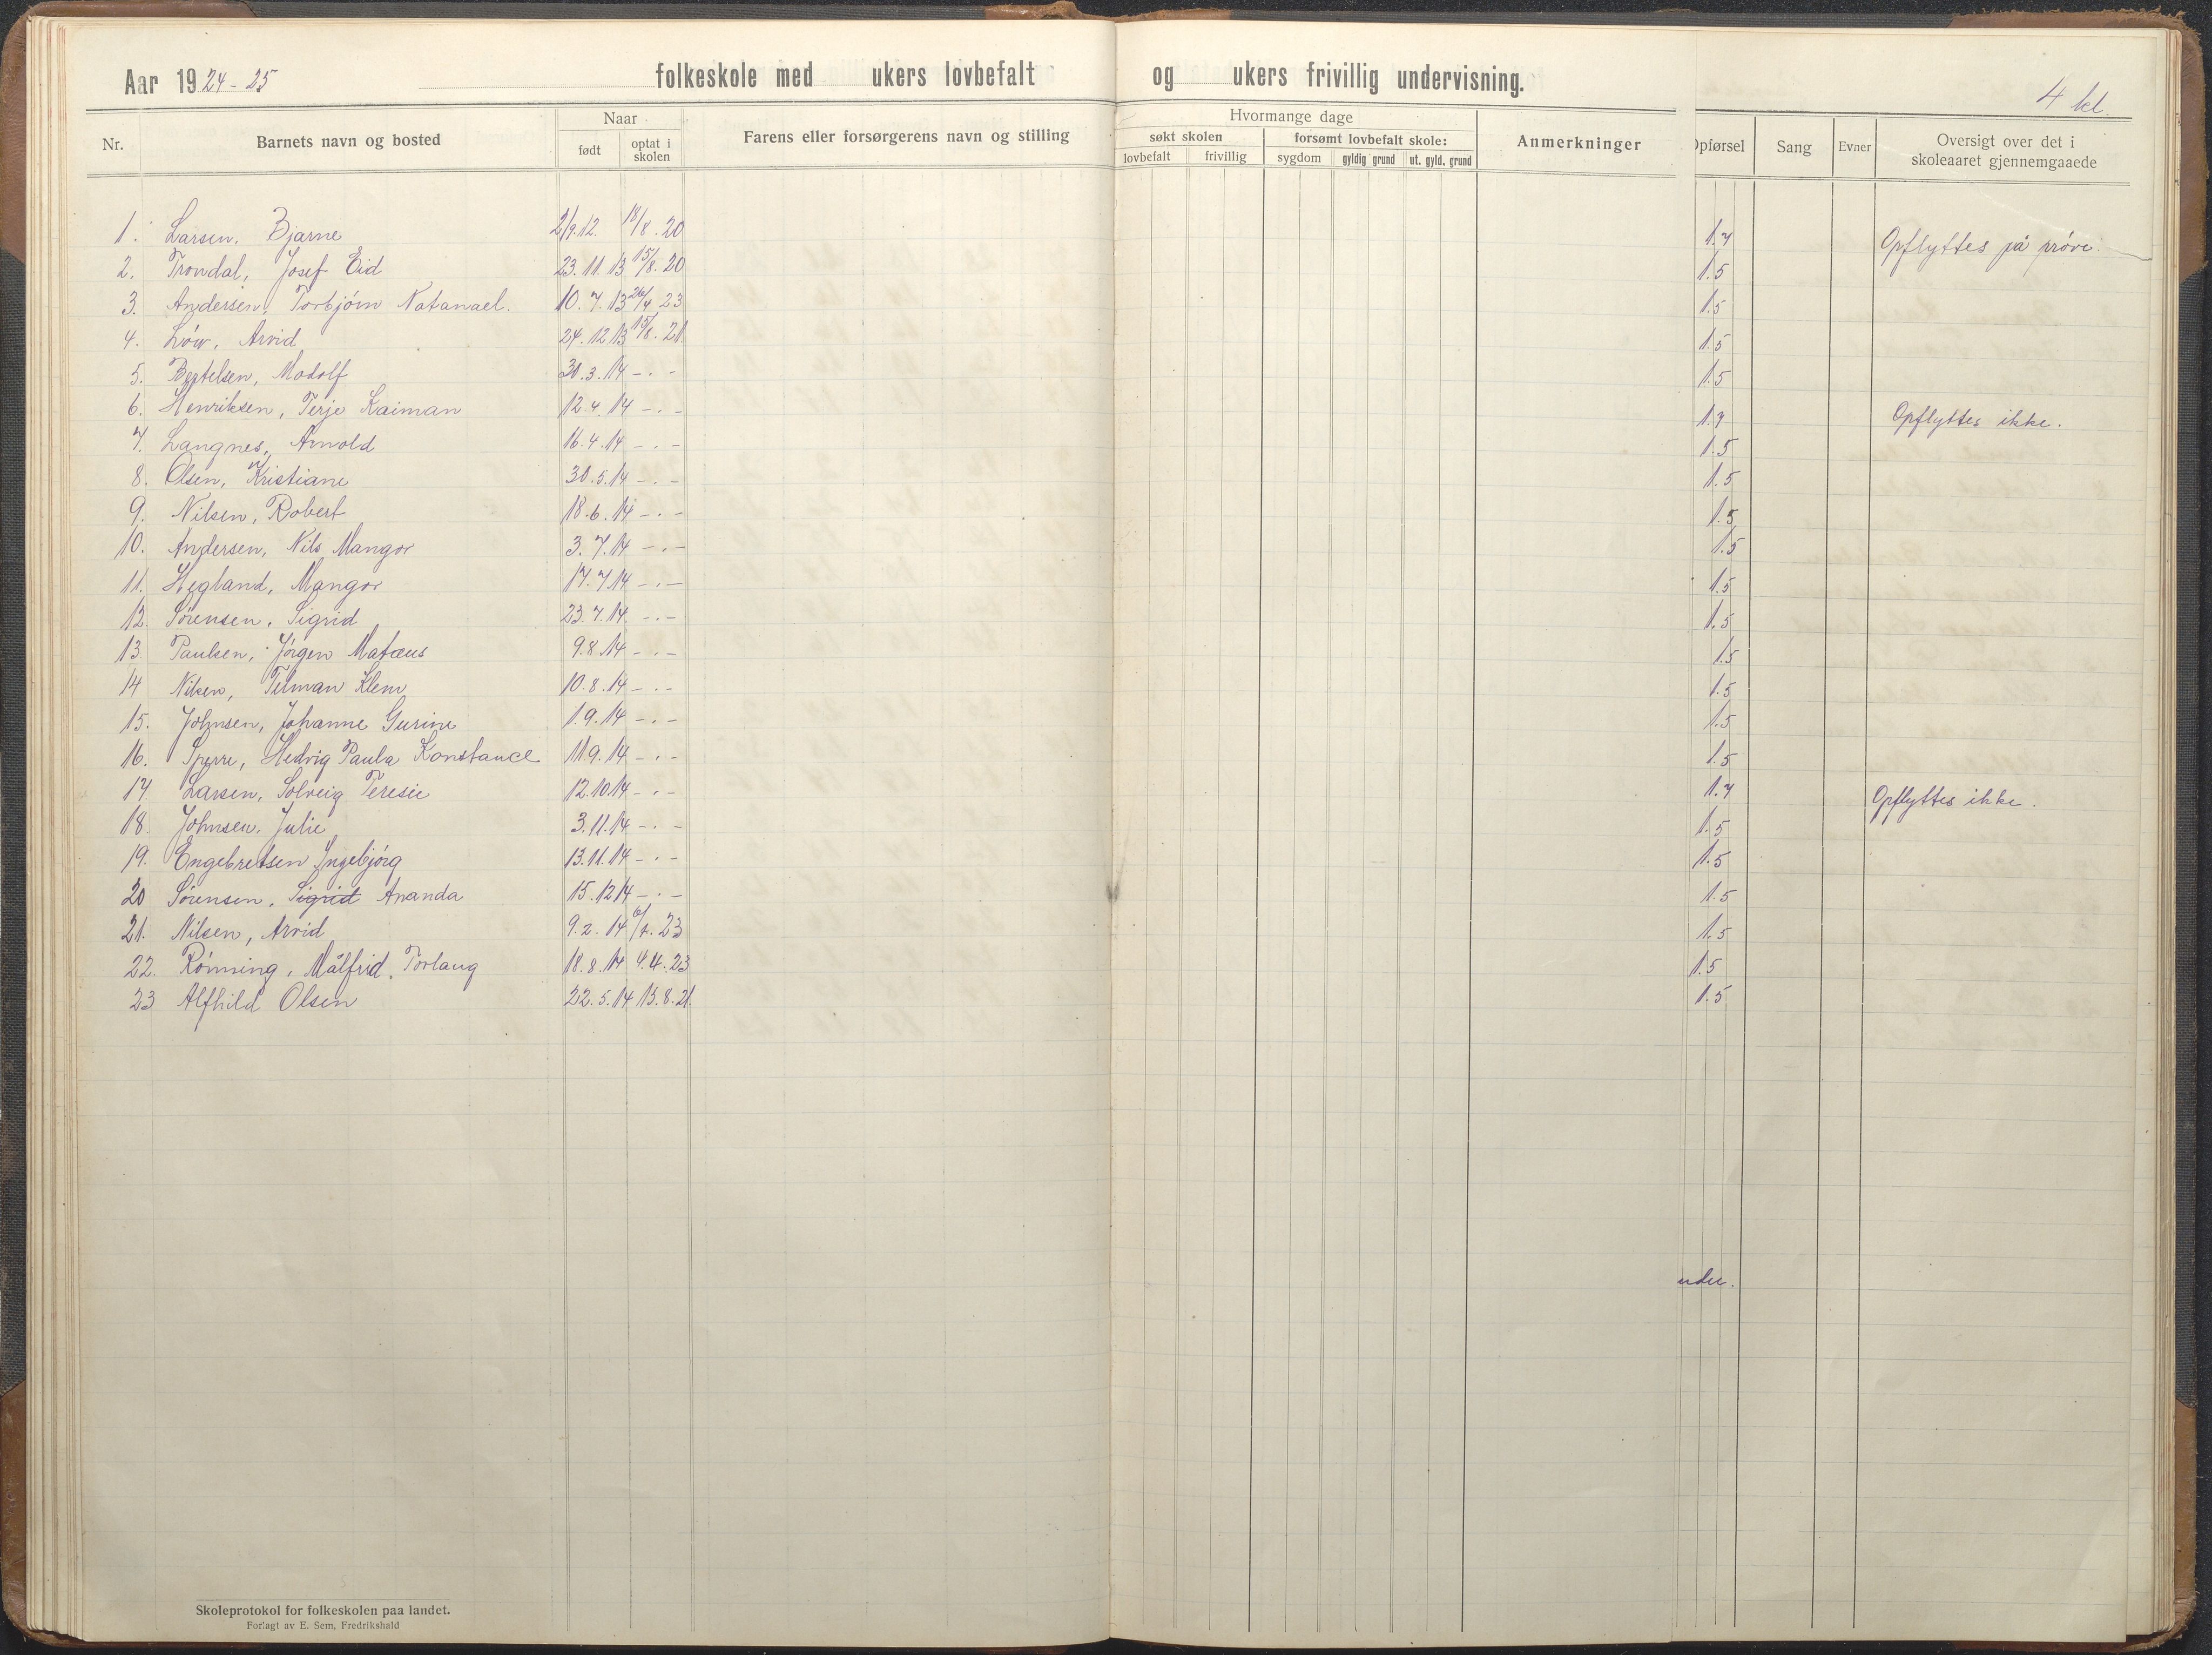 Aar 1924-25 folkeskole med ukers lovbefalt og ukers frivillig undervisning.
4 kl.
Nr. Barnets navn og bosted Naar født optat i skolen Farens eller forsørgerens navn og stilling Hvormange dage søkt skolen lovbefalt frivillig forsømt lovbefalt skole: sygdom gyldig grund ut. gyld. grund Anmerkninger Opførsel Sang Evner Oversigt over det i skoleaaret gjennemgaaede
1. Larsen, Bjarne 2/9.12. 18/8.20 1.7 Opflyttes på prøve.
2. Trondal, Josef Eid 23.11.13 15/8.20 1.5
3. Andersen, Torbjörn Natanael. 10.7.13 26/4 23 1.5
4. Löw, Arvid 24.12 13 15/8.21 1.5
5. Bertelsen, Modolf 30.3.14 -.- 1.5
6. Henriksen, Terje Kaiman 12.4.14 -.- 1.7 Opflyttes ikke.
7. Langnes, Arnold 16.4.14 -.- 1.5
8. Olsen, Kristiane 30.5.14 -.- 1.5
9. Nilsen, Robert 18.6.14 -.- 1.5
10. Andersen, Nils Mangor 3.7.14 -.- 1.5
11. Hegland, Mangor 17.7 14 -.- 1.5
12. Sörensen, Sigrid 23.7.14. -.- 1.5
13. Paulsen, Jörgen Matæus 9.8.14 -.- 1.5
14 Nilsen, Tilman Klem 10.8.14 -.- 1.5
15. Johnsen, Johanne Gurine 1.9.14 -.- 1.5
16. Sperre, Hedvig Paula Konstance 11.9.14 -.- 1.5
17. Larsen, Solveig Teresie 12.10.14 -.- 1.7 Opflyttes ikke.
18. Johnsen, Julie 3.11.14 -.- 1.5
19. Engebretsen Ingebjörg 13.11.14 -.- 1.5
20 Sörensen, Sigrid Ananda 15.12 14 -.- 1.5
21. Nilsen, Arvid 9.2.14 23 1.5
22. Rönning, Målfrid, Torlaug 18.8.14 4.4.23 1.5
23 Alfhild Olsen 22.5.14 15.8.21. 1.5
Skoleprotokol for folkeskolen paa landet.
Forlagt av E. Sem, Fredrikshald